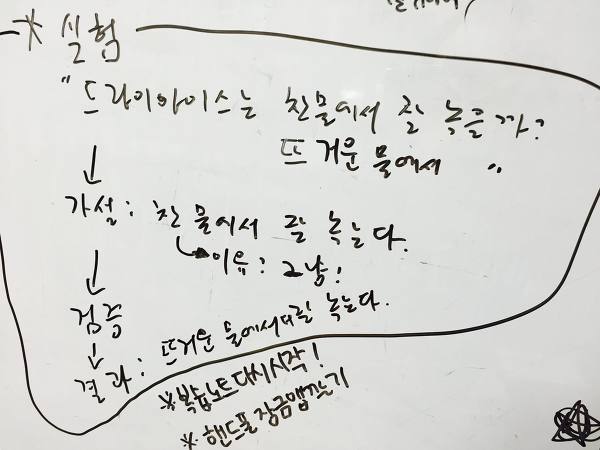 * 실험
" 드라이아이스는 찬물에서 잘 녹을까?
뜨거운 물에서 "
↓
가설: 찬 물에서 잘 녹는다.
↳ 이유: 그냥!
↓
검증
↓
결과: 뜨거운 물에서 더 잘 녹는다.
※ 복습노트 다시 시작!
※ 핸드폰 잠금앱 깔기